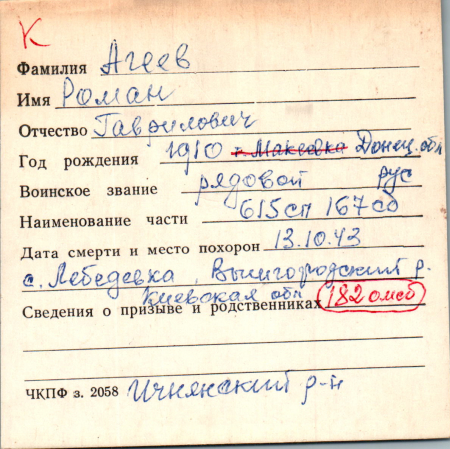 К
Фамилия Агеев
Имя Роман
Отчество Гаврилович
Год рождения 1910 г. Макеевка Донец. обл
Воинское звание рядовой рус
Наименование части 615 сп 167 сд
Дата смерти и место похорон 13.10.43
с. Лебедевка, Вышгородский р.
Киевская обл
Сведения о призыве и родственниках 182 омсб
ЧКПФ з. 2058 Ичнянский р-н